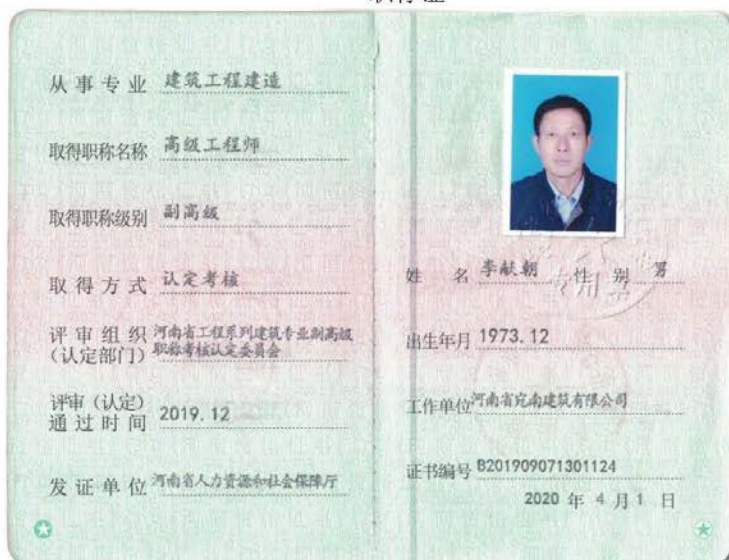 职称证
从事专业 建筑工程建造
取得职称名称 高级工程师
取得职称级别 副高级
取得方式 认定考核
评审组织
(认定部门)
河南省工程系列建筑专业副高级
职称考核认定委员会
评审（认定）
通过时间
2019.12
发证单位 河南省人力资源和社会保障厅
姓名 李献朝 性别 男
专用章
出生年月 1973.12
工作单位 河南省宛南建筑有限公司
证书编号 B201909071301124
2020 年 4 月 1 日